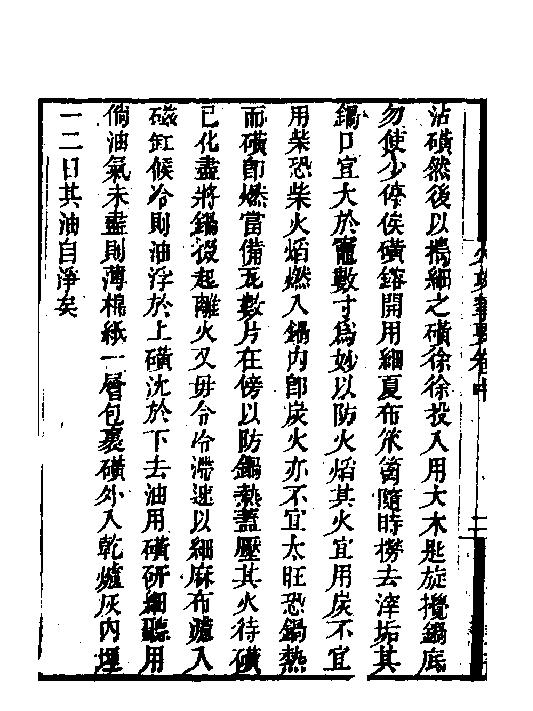 沾磺然後以搗細之磺徐徐投入用大木匙旋攪鍋底
勿使少停俟磺鎔開用細夏布笊篱隨時撈去滓垢其
鍋口宜大於竈數寸爲妙以防火焰其火宜用炭不宜
用柴恐柴火焰燃入鍋内卽炭火亦不宜太旺恐鍋熱
而磺卽燃當備瓦數片在傍以防鍋熱蓋壓其火待磺
已化盡將鍋掇起離火又毋令冷滯速以細麻布濾入
磁缸候冷則油浮於上磺沈於下去油用磺研細聽用
倘油氣未盡則薄棉紙一層包裹磺外入乾爐灰内埋
一二日其油自淨矣
火攻挈要卷中
二